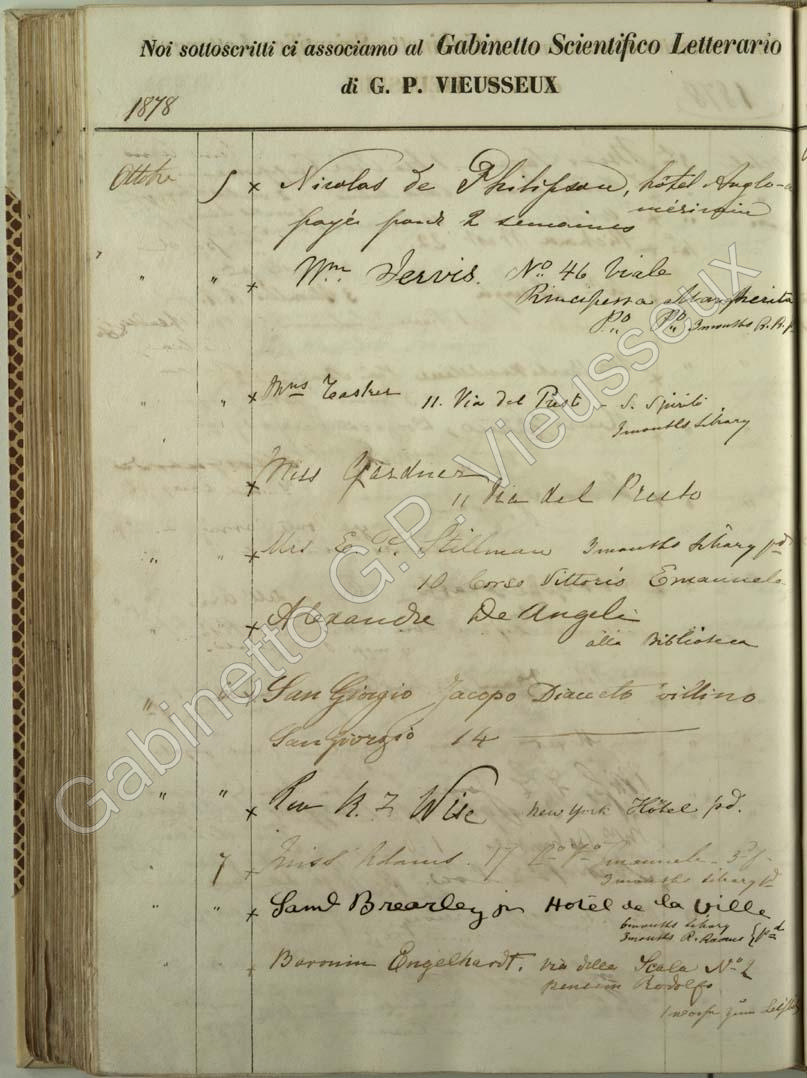 Noi sottoscritti ci associamo al Gabinetto Scientifico Letterario
di G. P. VIEUSSEUX
1878
Ottobre 5 x Nicolas de Philipson, hôtel Anglo-a
méricain
payé pour 2 semaines
" " x Wm Jervis. No 46 Viale
Principessa Margherita
Po Po 3 months R. R. p
" " x Mrs Tasker 11. Via del Presto - S. Spirito
3 months library
x Miss Gardner
11 Via del Presto
" " x Mrs E. Stillman 3 months library pd
10 Corso Vittorio Emanuele
x Alexandre De Angeli
alla Biblioteca
" 6 San Giorgio Jacopo Diacceto villino
San Giorgio 14
" " x Rev K. Z Wise New York Hôtel pd.
7 x Miss Adams. 17
3 months library pd
" " x Saml Brearley jr Hotel de la Ville
6 months library
3 months R. Rooms } pd
x Baronin Engelhardt. Via della Scala No 2
Pension Rodolfo
Gabinetto G.P. Vieusseux